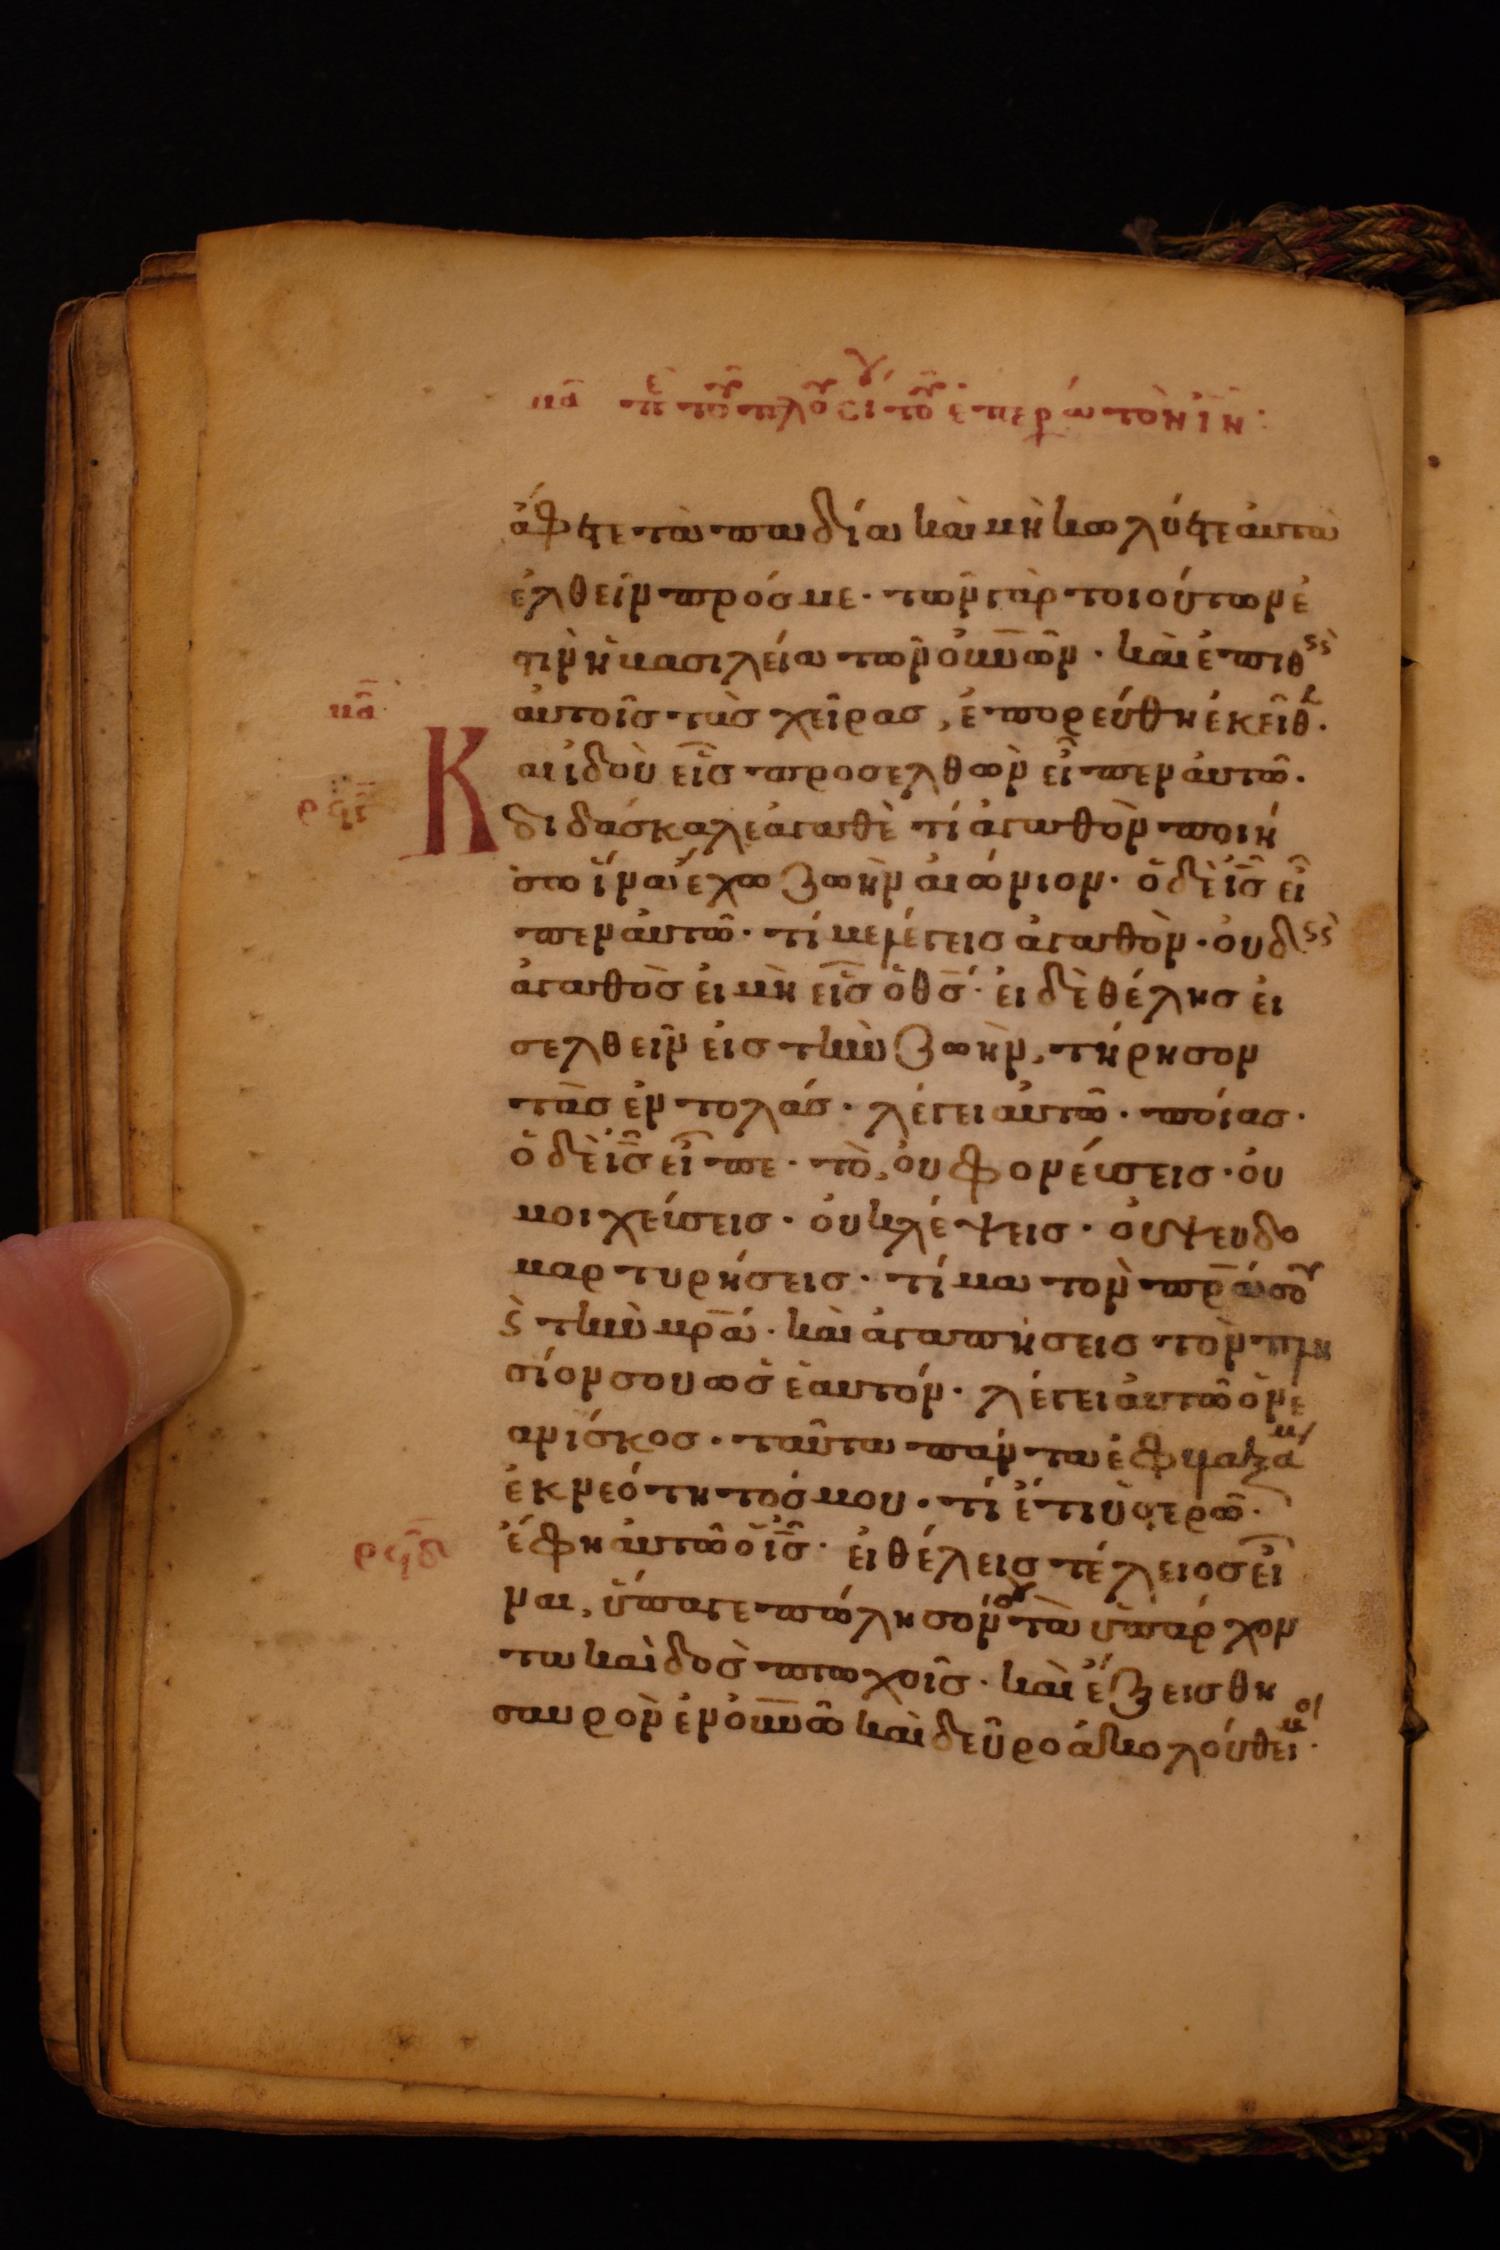 ἄφετε τὰ παιδία καὶ μὴ κωλύετε αὐτὰ
ἐλθεῖν πρός με· τῶν γὰρ τοιούτων ἐ
στὶν ἡ βασιλεία τῶν οὐνῶν· καὶ ἐπιθ
αὐτοῖς τὰς χεῖρας, ἐπορεύθη ἐκεῖθ·
Καὶ ἰδοὺ εἷς προσελθὼν εἶπεν αὐτῶ·
διδάσκαλε ἀγαθὲ τί ἀγαθὸν ποιή
σω ἵνα ἔχω ζωὴν αἰώνιον· ὁ δὲ ις εἶ
πεν αὐτῶ· τί με λέγεις ἀγαθὸν· οὐδ
ἀγαθὸς εἰ μὴ εἷς ὁ θς· εἰ δὲ θέλης εἰ
σελθεῖν εἰς τὴν ζωὴν, τήρησον
τὰς ἐντολάς· λέγει αὐτῶ· ποίας·
ὁ δὲ ις εἶπε· τὸ, οὐ φονεύσεις· οὐ
μοιχεύσεις· οὐ κλέψεις· οὐ ψευδο
μαρτυρήσεις· τίμα τὸν πρα σου
ϛ τὴν μρα· καὶ ἀγαπήσεις τὸν πλη
σίον σου ὡς ἑαυτόν· λέγει αὐτῶ ὁ νε
ανίσκος· ταῦτα πάντα ἐφυλαξάμ
ἐκ νεότητός μου· τί ἔτι ὑστερῶ·
ἔφη αὐτῶ ὁ ις· εἰ θέλεις τέλειος εἶ
ναι, ὕπαγε πώλησόν σου τὰ ὑπάρχον
τα καὶ δὸς πτωχοῖς· καὶ ἕξεις θη
σαυρὸν ἐν οὐνῶ καὶ δεῦρο ἀκολούθει μοι·
μα
ρϟγ
ρϟδ